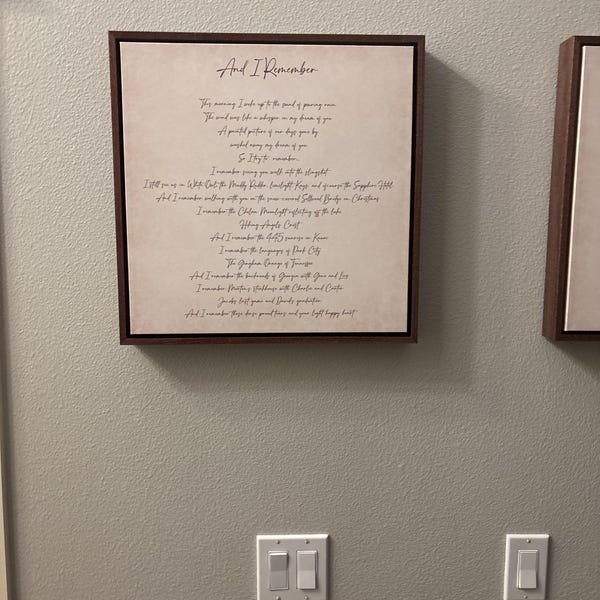 And I Remember
This morning I woke up to the sound of pouring rain
The wind was like a whisper in my dream of you
A painted picture of our days gone by
washed away my dream of you
So I try to remember..
I remember seeing you walk into the slingshot
I still see us in White Owl, the Muddy Rudder, limelight, Kays, and of course the Sapphire Hotel
And I remember walking with you on the snow covered Sellwood Bridge on Christmas
I remember the Chilean Moonlight reflecting off the lake
Hiking Angels Crest
And I remember the 4:45 sunrise in
I remember the languages of Park City
The Gingham Orange of Tennessee
And I remember the backroads of Georgia with Gene and
I remember steakhouse with Charlie and
Jacobs last game and Davids graduation
And I remember those dose proud tears and your light happy heart